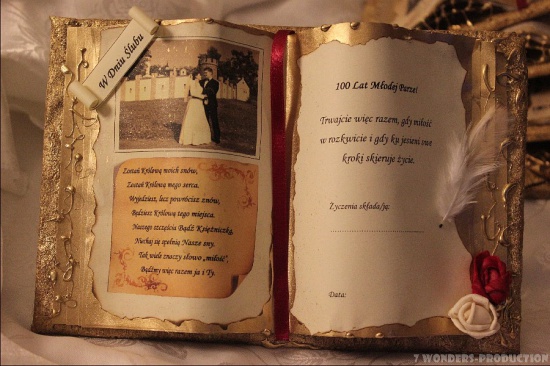 W Dniu Ślubu
Zostań Królową moich snów,
Zostań Królową mego serca.
Wyjedziesz, lecz powrócisz znów,
Będziesz Królową tego miejsca.
Naszego szczęścia Bądź Księżniczką,
Niechaj się spełnią Nasze sny.
Tak wiele znaczy słowo „miłość",
Bądźmy więc razem ja i Ty.
100 Lat Młodej Parze!
Trwajcie więc razem, gdy miłość
w rozkwicie i gdy ku jesieni swe
kroki skieruje życie.
Życzenia składa/ją:
Data:
7 WONDERS-PRODUCTION